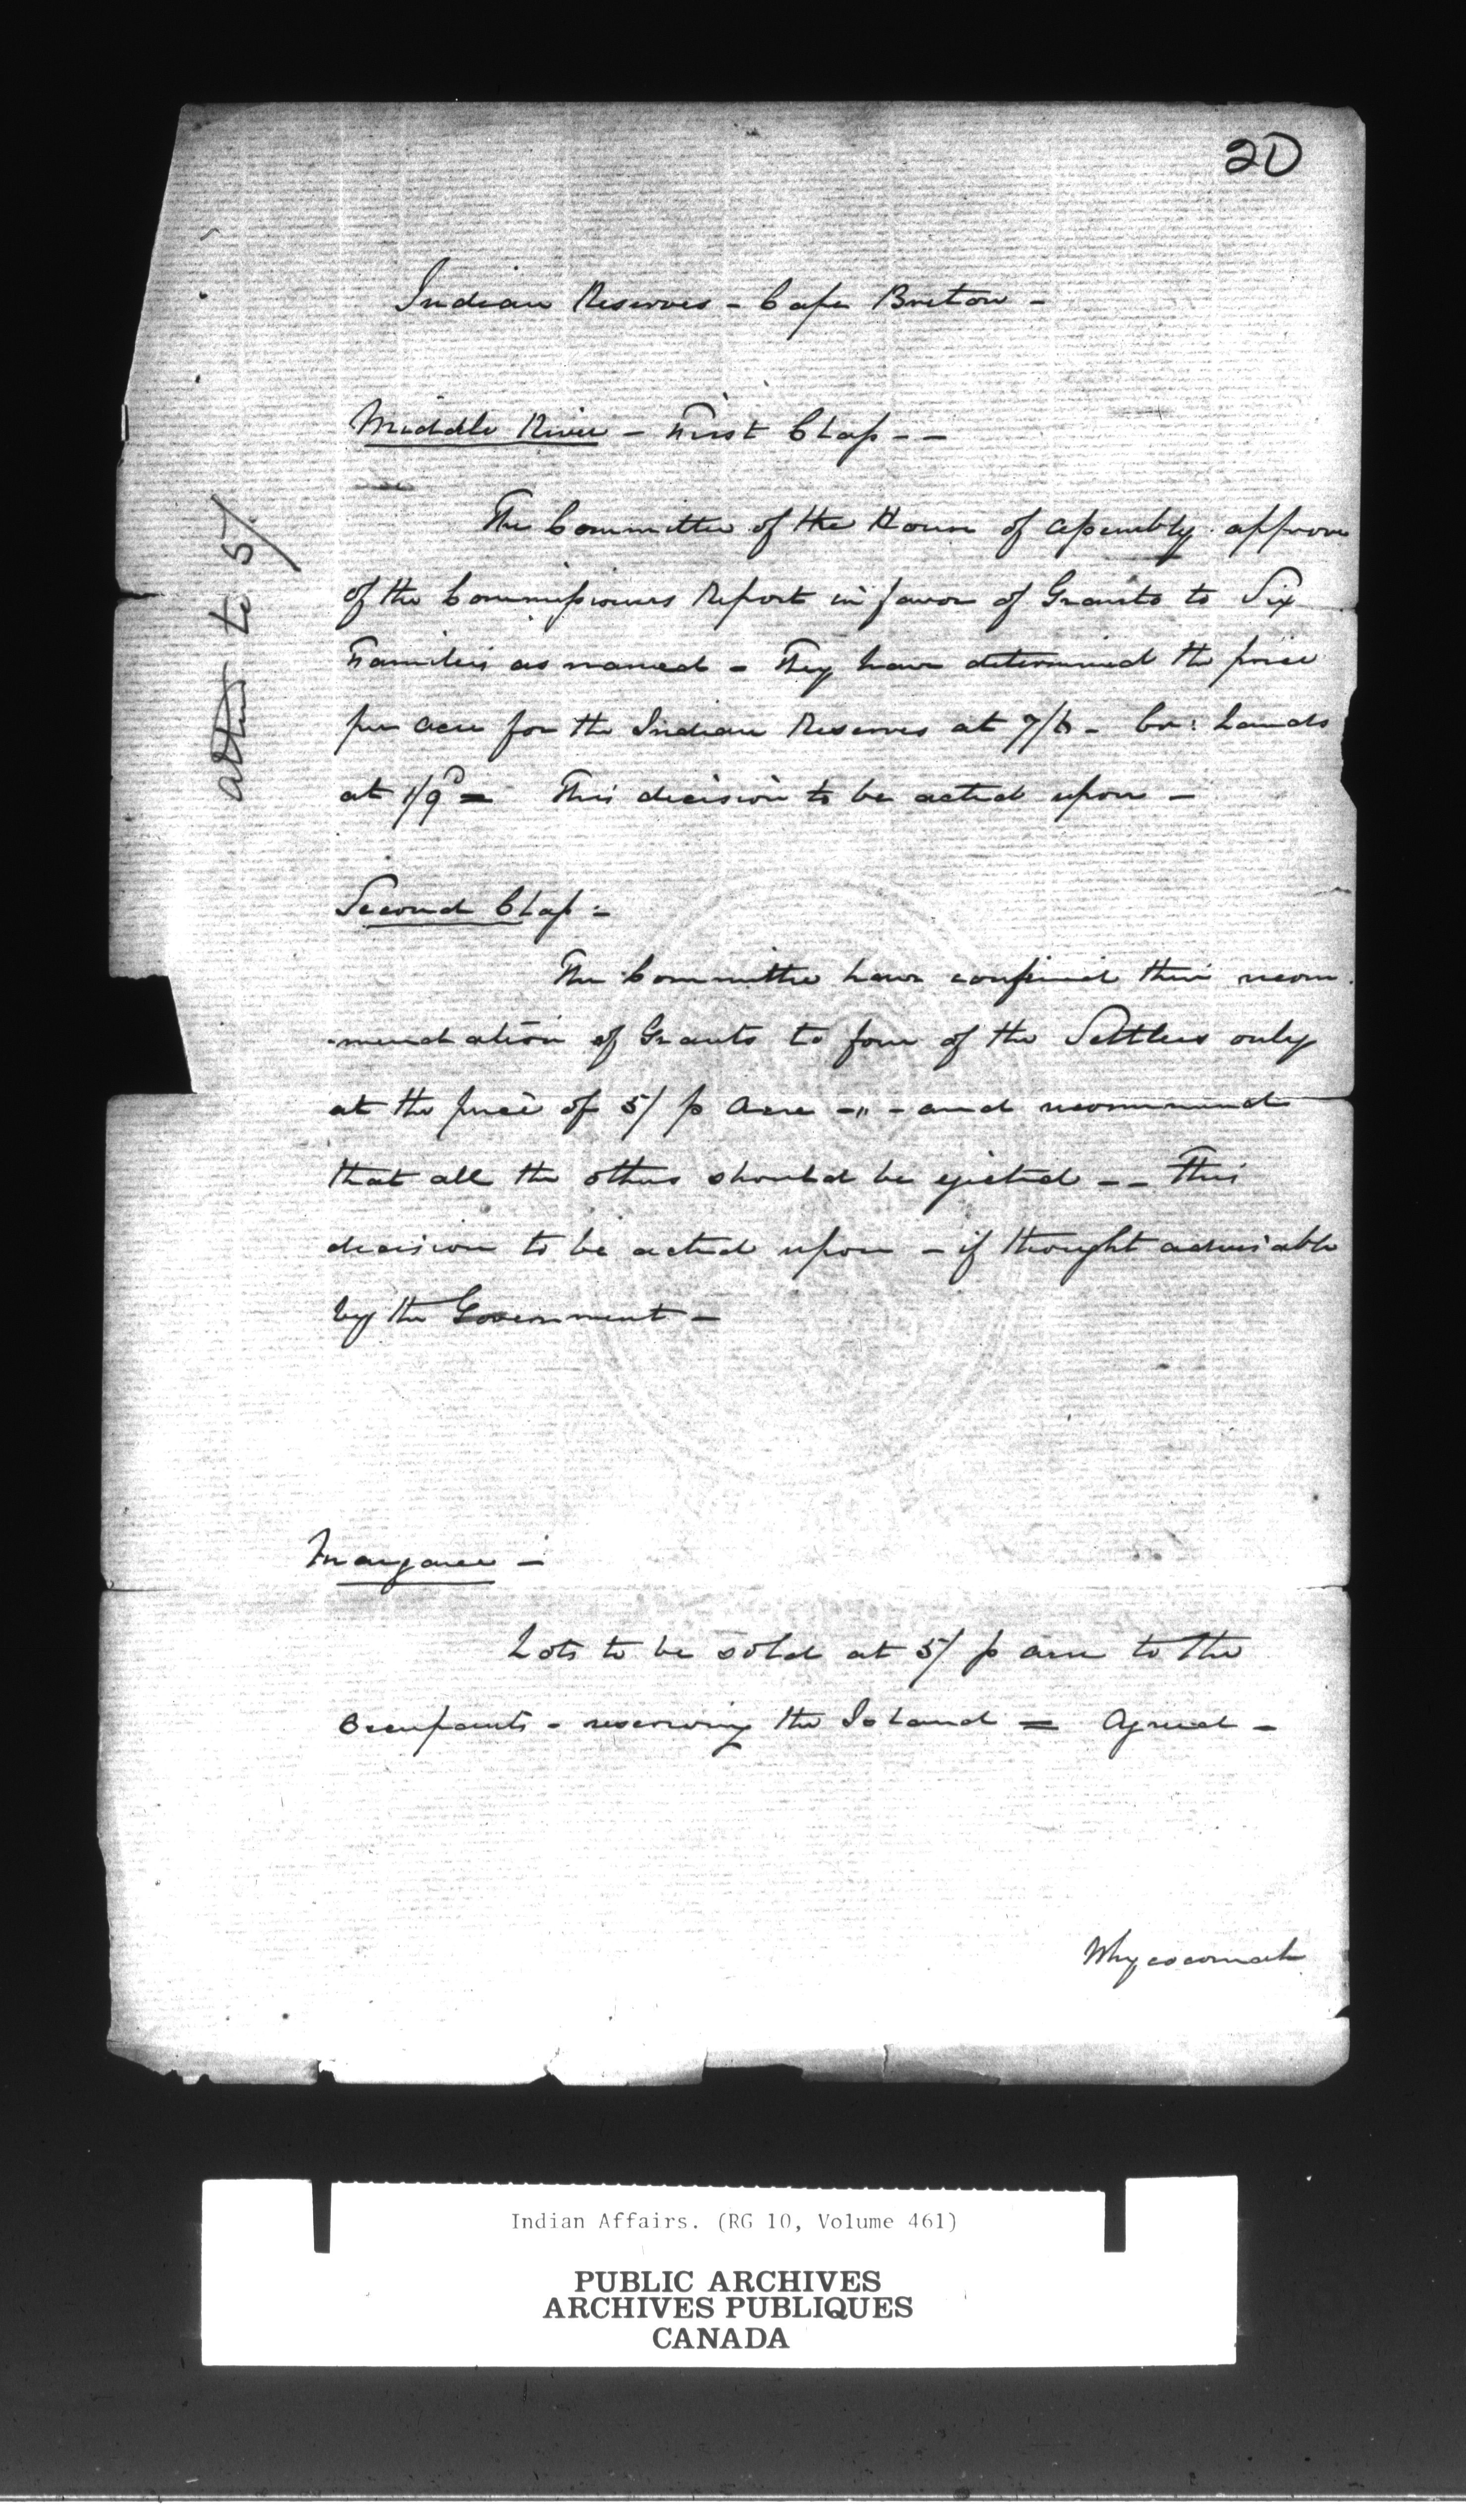 20
Indian Reserves - Cape Breton -
Middle River - First Class - -
The Committee of the House of Assembly approve
of the Commissioners Report in favor of Grants to Six
Families as named - They have determined the price
per acre for the Indian Reserves at 7/6 - Cr: Lands
at 1/9d = This decision to be acted upon -
alter to 5/
Second Class -
The Committee have confined their recom
-mendation of Grants to four of the Settlers only
at the price of 5/ p Acre -"- and recommend
that all the others should be ejected - - This
decision to be acted upon - if thought advisable
by the Government -
Margaree -
Lots to be sold at 5/ p acre to the
Occupants - reserving the Island = Agreed -
Whycocomah
Indian Affairs. (RG 10, Volume 461)
PUBLIC ARCHIVES
ARCHIVES PUBLIQUES
CANADA